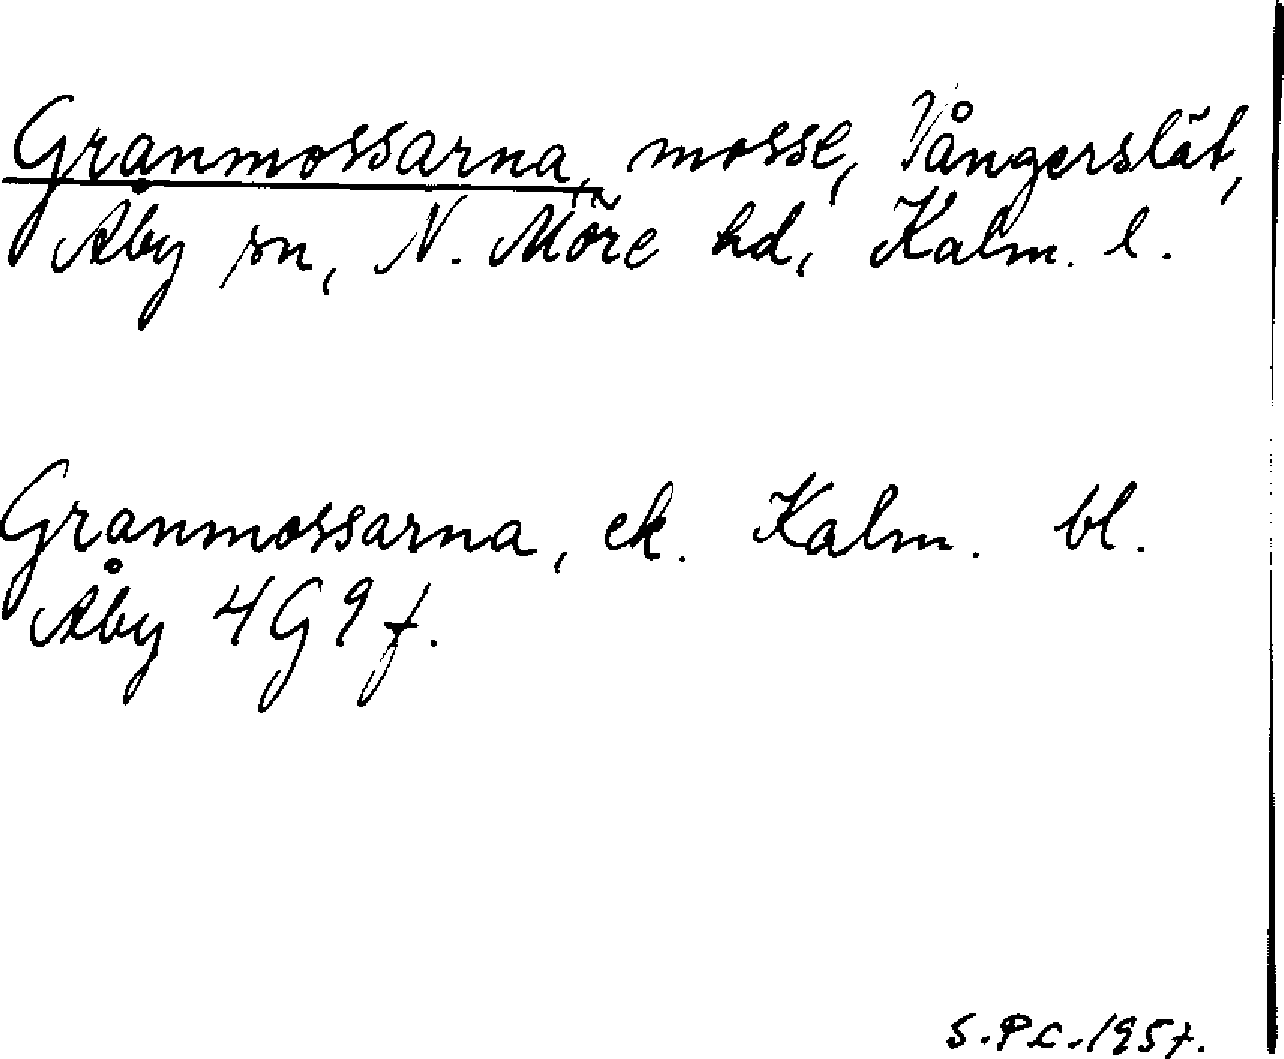 Granmossarna, mosse, Vångerslät,
Åby sn, N. Möre hd, Kalm. l.
Granmossarna, ek. Kalm. bl.
Åby 4G9f.
S.P.C. 1957.